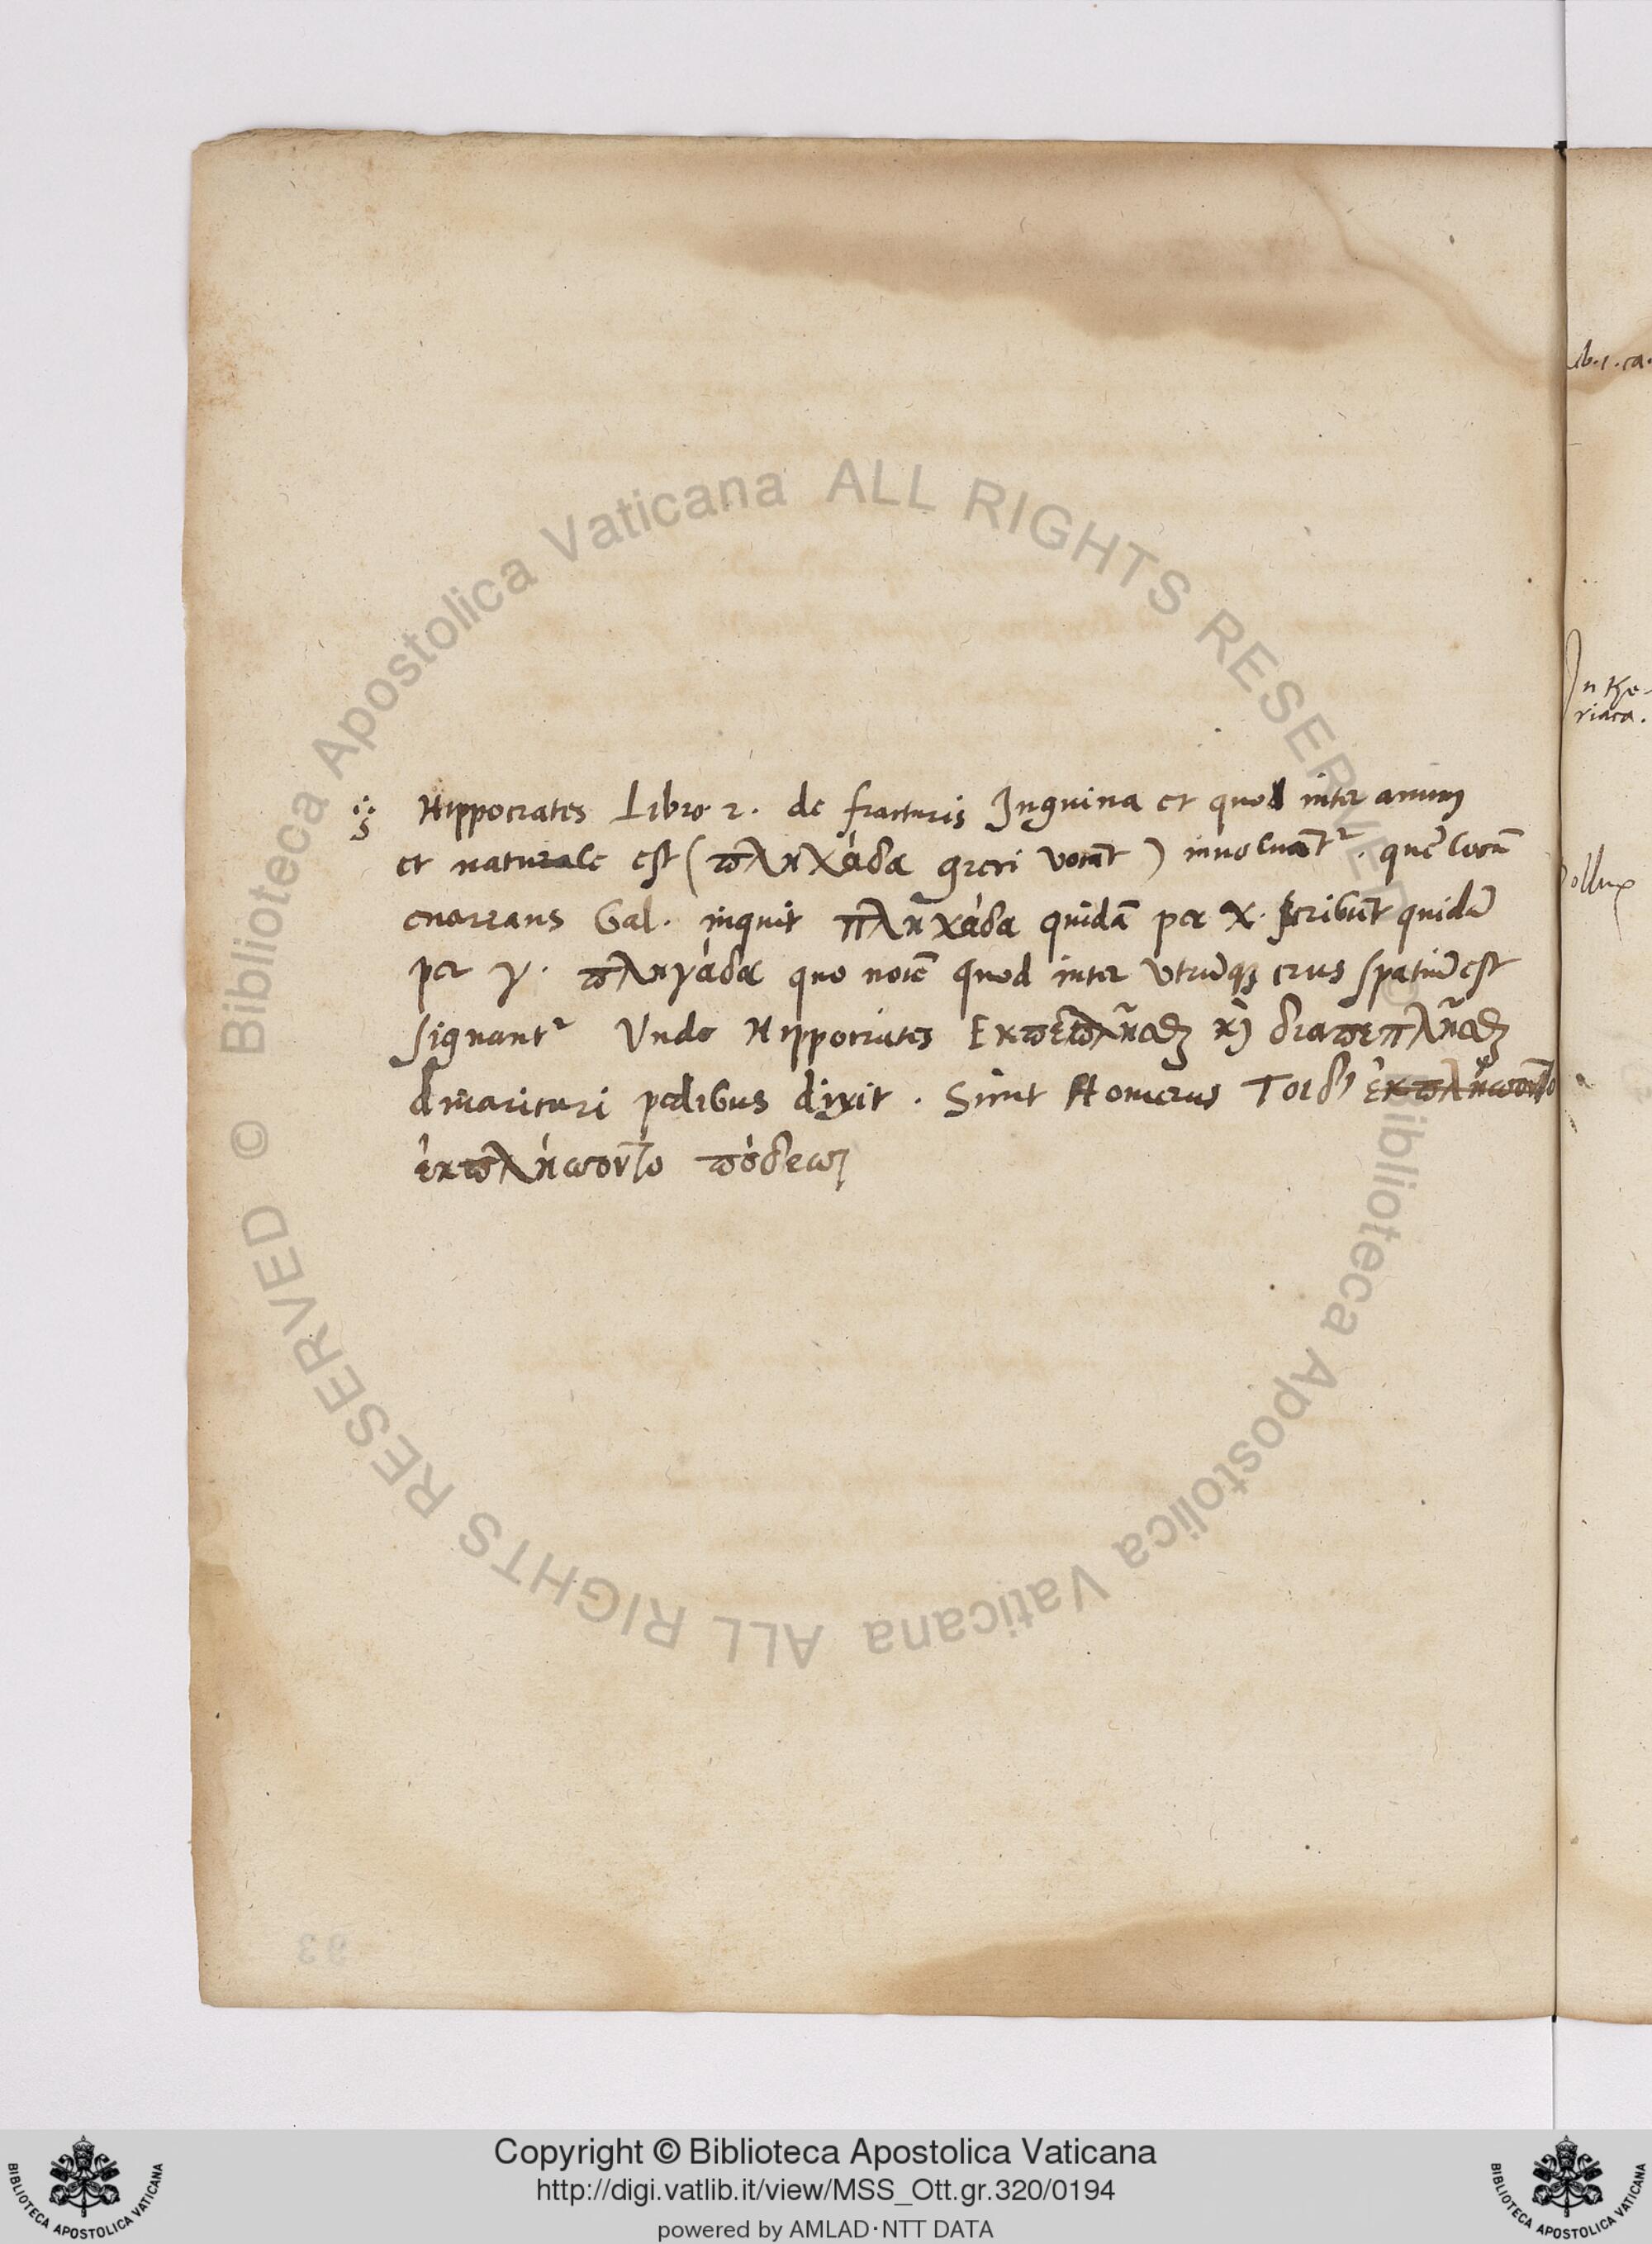 Hippocrates Libro 2. de fracturis Inguina et quod inter anum
et naturale est (πληχάδα greci vocāt) inuoluāt². quē locū
enarrans Gal. inquit πλη̃χάδα quidā per χ. scribūt quidā
per γ. πληγάδα quo noīe quod inter vtrūq₃ crus spatiū est
signant² Vnde Hippocrates Εκπεπλῆσθ καὶ διαπεπλῆσθ
diuaricari pedibus dixit. Sicut Homerus Τοι δ'
ἐκπλήσσοντο πόδεσσι
lib. 1. ca.
In the-
riaca.
ollux
93
Biblioteca Apostolica Vaticana ALL RIGHTS RESERVED ©
Biblioteca Apostolica Vaticana ALL RIGHTS RESERVED ©
Copyright © Biblioteca Apostolica Vaticana
http://digi.vatlib.it/view/MSS_Ott.gr.320/0194
powered by AMLAD·NTT DATA
BIBLIOTECA APOSTOLICA VATICANA
BIBLIOTECA APOSTOLICA VATICANA